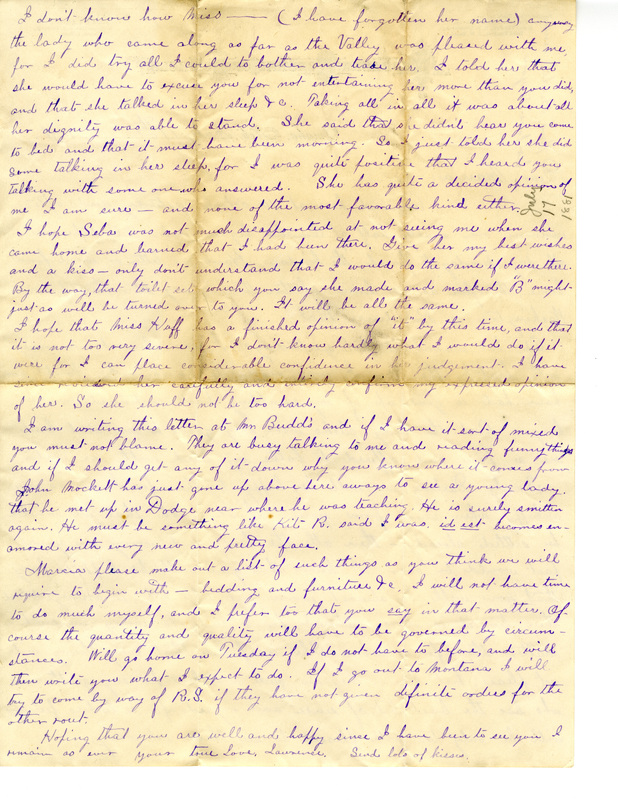 I don't know how Miss —— (I have forgotten her name) anyway
the lady who came along as far as the Valley was pleased with me,
for I did try all I could to bother and tease her. I told her that
she would have to excuse you for not entertaining her more than you did,
and that she talked in her sleep &c. Taking all in all it was about all
her dignity was able to stand. She said that she didn't hear you come
to bed and that it must have been morning. So I just told her she did
some talking in her sleep, for I was quite positive that I heard you
talking with some one who answered. She has quite a decided opinion of
me I am sure — and none of the most favorable kind either.
July
17
1881
I hope Seba was not much disappointed at not seeing me when she
came home and learned that I had been there. Give her my best wishes
and a kiss — only don't understand that I would do the same if I were there.
By the way, that toilet set which you say she made and marked "B" might
just as well be turned over to you. It will be all the same.
I hope that Miss Huff has a finished opinion of "it" by this time, and that
it is not too very severe, for I don't know hardly what I would do if it
were for I can place considerable confidence in her judgement. I have
her carefully and my expressed opinion
of her. So she should not be too hard.
I am writing this letter at Mr Budd's and if I have it sort of mixed
you must not blame. They are busy talking to me and reading funny things
and if I should get any of it down why you know where it comes from
John Mockett has just gone up above here aways to see a young lady
that he met up in Dodge near where he was teaching. He is surely smitten
again. He must be something like Kite R. said I was. id est becomes en-
amored with every new and pretty face.
Marcia please make out a list of such things as you think we will
require to begin with — bedding and furniture &c. I will not have time
to do much myself, and I prefer too that you say in that matter. Of
course the quantity and quality will have to be governed by circum-
stances. Will go home on Tuesday if I do not have to before, and will
then write you what I expect to do. If I go out to Montana I will
try to come by way of R.I. if they have not given definite orders for the
other rout.
Hoping that you are well and happy since I have been to see you I
remain as ever your true love, Lawrence. Send lots of kisses.